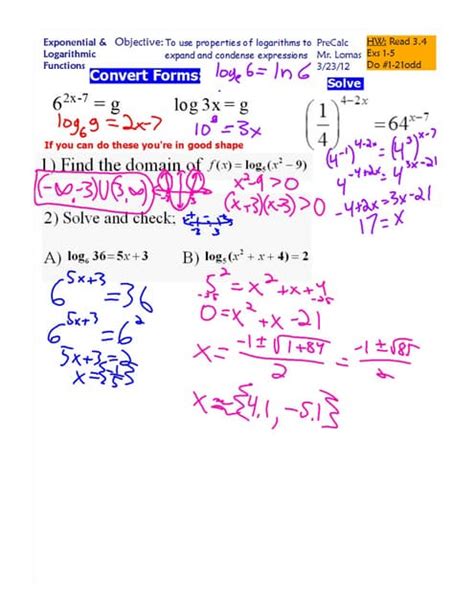 Exponential & Objective: To use properties of logarithms to PreCalc HW: Read 3.4
Logarithmic expand and condense expressions Mr. Lomas Exs 1-5
Functions 3/23/12 Do #1-21odd
Convert Forms: logₑ6 = ln 6
Solve
6^(2x-7) = g log 3x = g (1/4)^(4-2x) = 64^(x-7)
log₆g = 2x-7 10^g = 3x (4^-1)^(4-2x) = (4^3)^(x-7)
If you can do these you're in good shape
4^(-4+2x) = 4^(3x-21)
-4+2x = 3x-21
17 = x
1) Find the domain of f(x) = log₅(x² - 9)
(-∞,-3)∪(3,∞) x²-9>0
(x+3)(x-3)>0
2) Solve and check:
-3 3
A) log₆ 36 = 5x + 3 B) log₅(x² + x + 4) = 2
6^(5x+3) = 36 5² = x²+x+4
-25 -25
6^(5x+3) = 6² 0 = x²+x-21
5x+3 = 2 x = (-1±√(1+84))/2 = (-1±√85)/2
x = {-1/5}
x ≈ {4.1, -5.1}